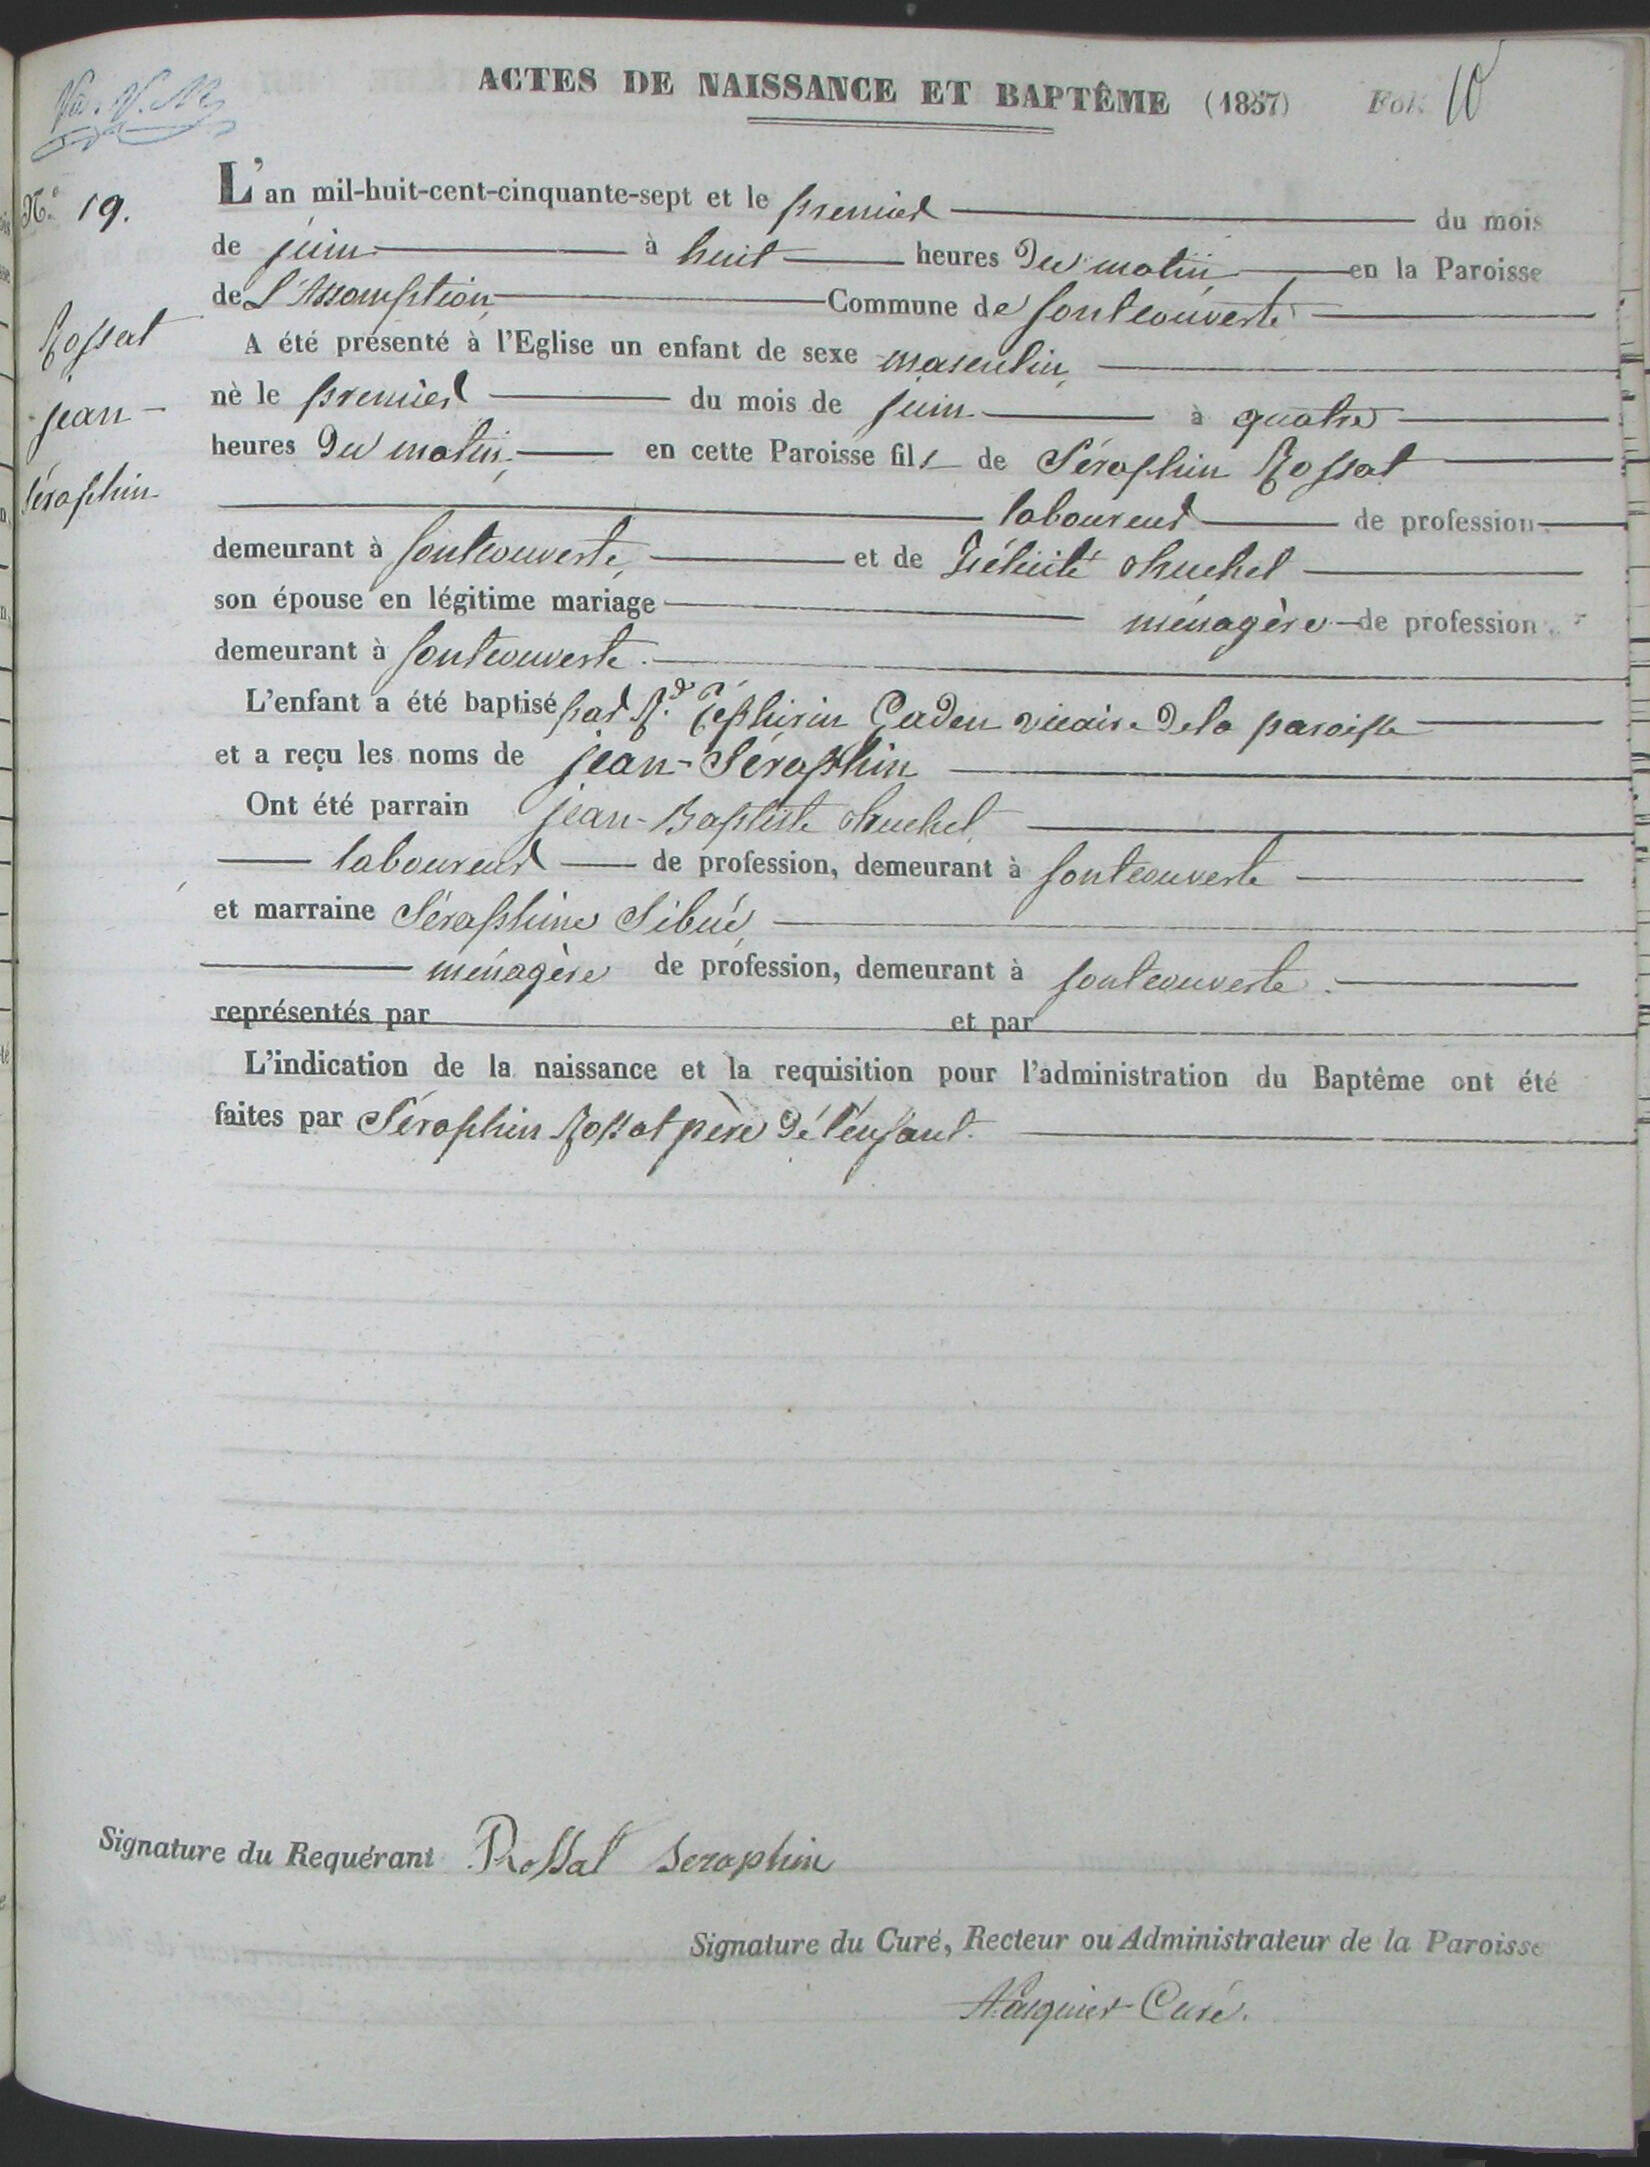 ACTES DE NAISSANCE ET BAPTÊME (1857) Fol. 10
N.o 19.
Rossat
jean-
Séraphin
L'an mil-huit-cent-cinquante-sept et le premier du mois
de juin à huit heures du matin en la Paroisse
de L'Assomption Commune de fontcouverte
A été présenté à l'Eglise un enfant de sexe masculin
nè le premier du mois de juin à quatre
heures du matin en cette Paroisse fils de Séraphin Rossat
laboureur de profession
demeurant à fontcouverte, et de Félicité
son épouse en légitime mariage ménagère de profession
demeurant à fontcouverte.
L'enfant a été baptisé par R.d Zéphirin vicaire de la paroisse
et a reçu les noms de jean-Séraphin
Ont été parrain jean-Baptiste
laboureur de profession, demeurant à fontcouverte
et marraine Séraphine Sibué
ménagère de profession, demeurant à fontcouverte.
représentés par et par
L'indication de la naissance et la requisition pour l'administration du Baptême ont été
faites par Séraphin Rossat père de l'enfant.
Signature du Requérant Rossat Seraphin
Signature du Curé, Recteur ou Administrateur de la Paroisse
Curé.